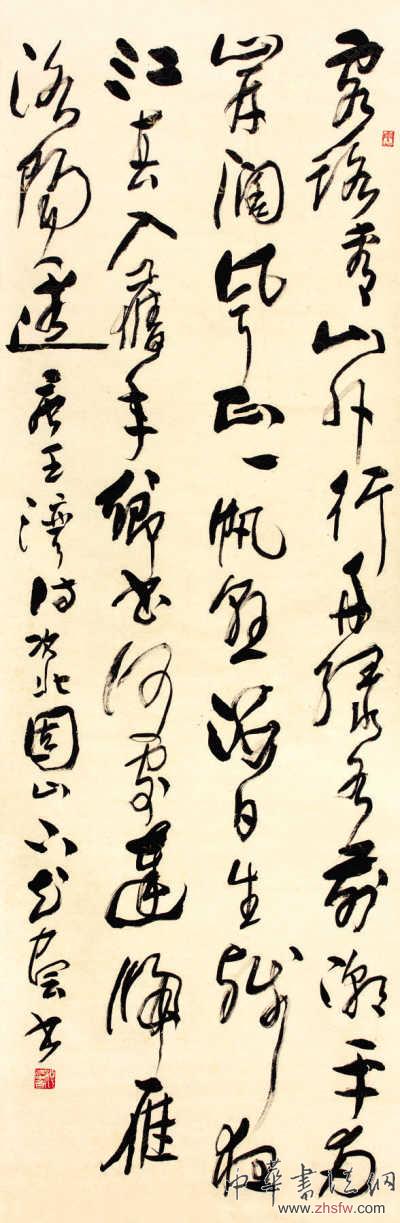 客路青山外行舟綠水前潮平兩
岸闊風正一帆懸海日生殘夜
江春入舊年鄉書何處達歸雁
洛陽邊 唐王灣詩次北固山下 書
中華書法網
www.zhsfw.com